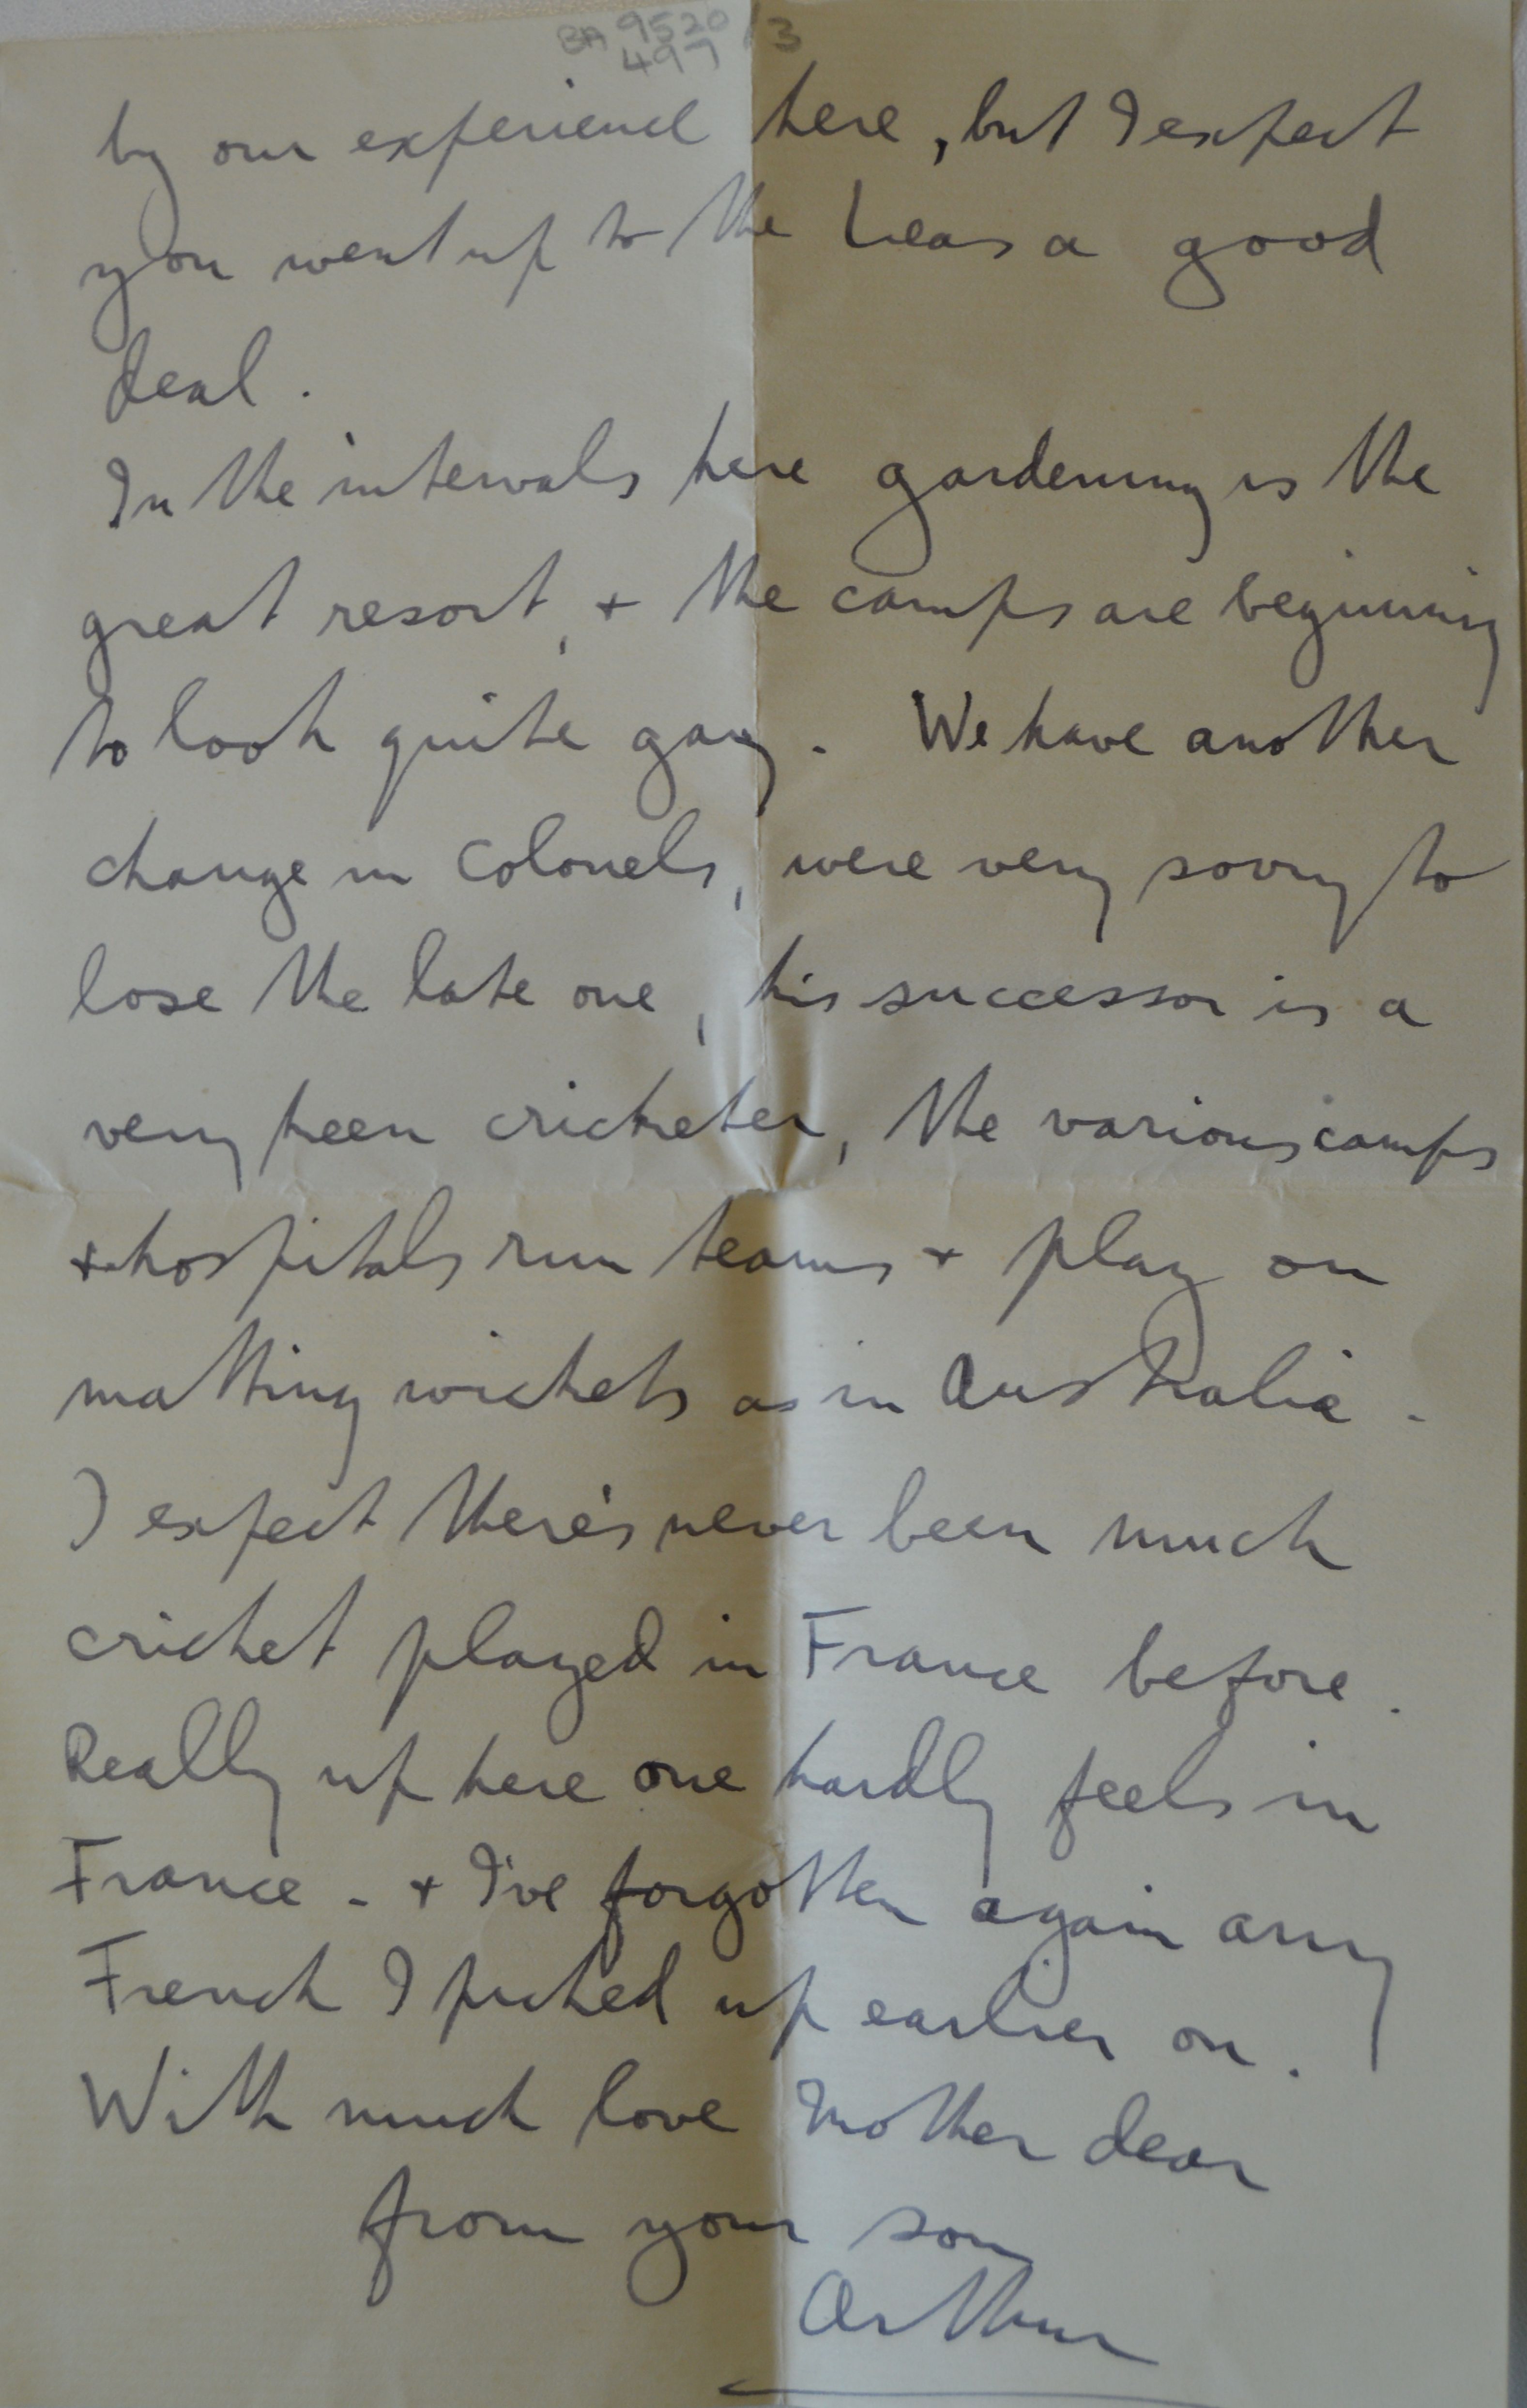 BA 9520/3
497
by our experience here, but I expect
you went up to the Leas a good
deal.
In the intervals here gardening is the
great resort, + the camps are beginning
to look quite gay. We have another
change in Colonels, were very sorry to
lose the late one, his successor is a
very keen cricketer, the various camps
+ hospitals run teams + play on
matting wickets as in Australia.
I expect there's never been much
cricket played in France before.
Really up here one hardly feels in
France - + I've forgotten again any
French I picked up earlier on.
With much love Mother dear
from your son
Arthur